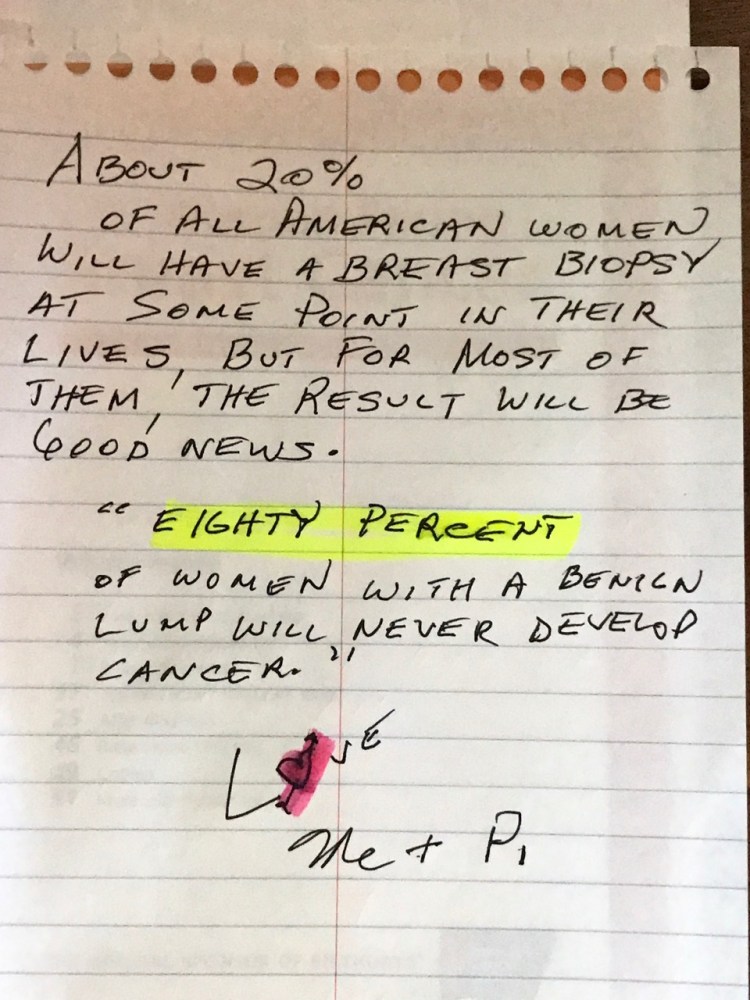 ABOUT 20%
OF ALL AMERICAN WOMEN
WILL HAVE A BREAST BIOPSY
AT SOME POINT IN THEIR
LIVES, BUT FOR MOST OF
THEM, THE RESULT WILL BE
GOOD NEWS.
"EIGHTY PERCENT
OF WOMEN WITH A BENIGN
LUMP WILL NEVER DEVELOP
CANCER."
L♥VE
Me + P,